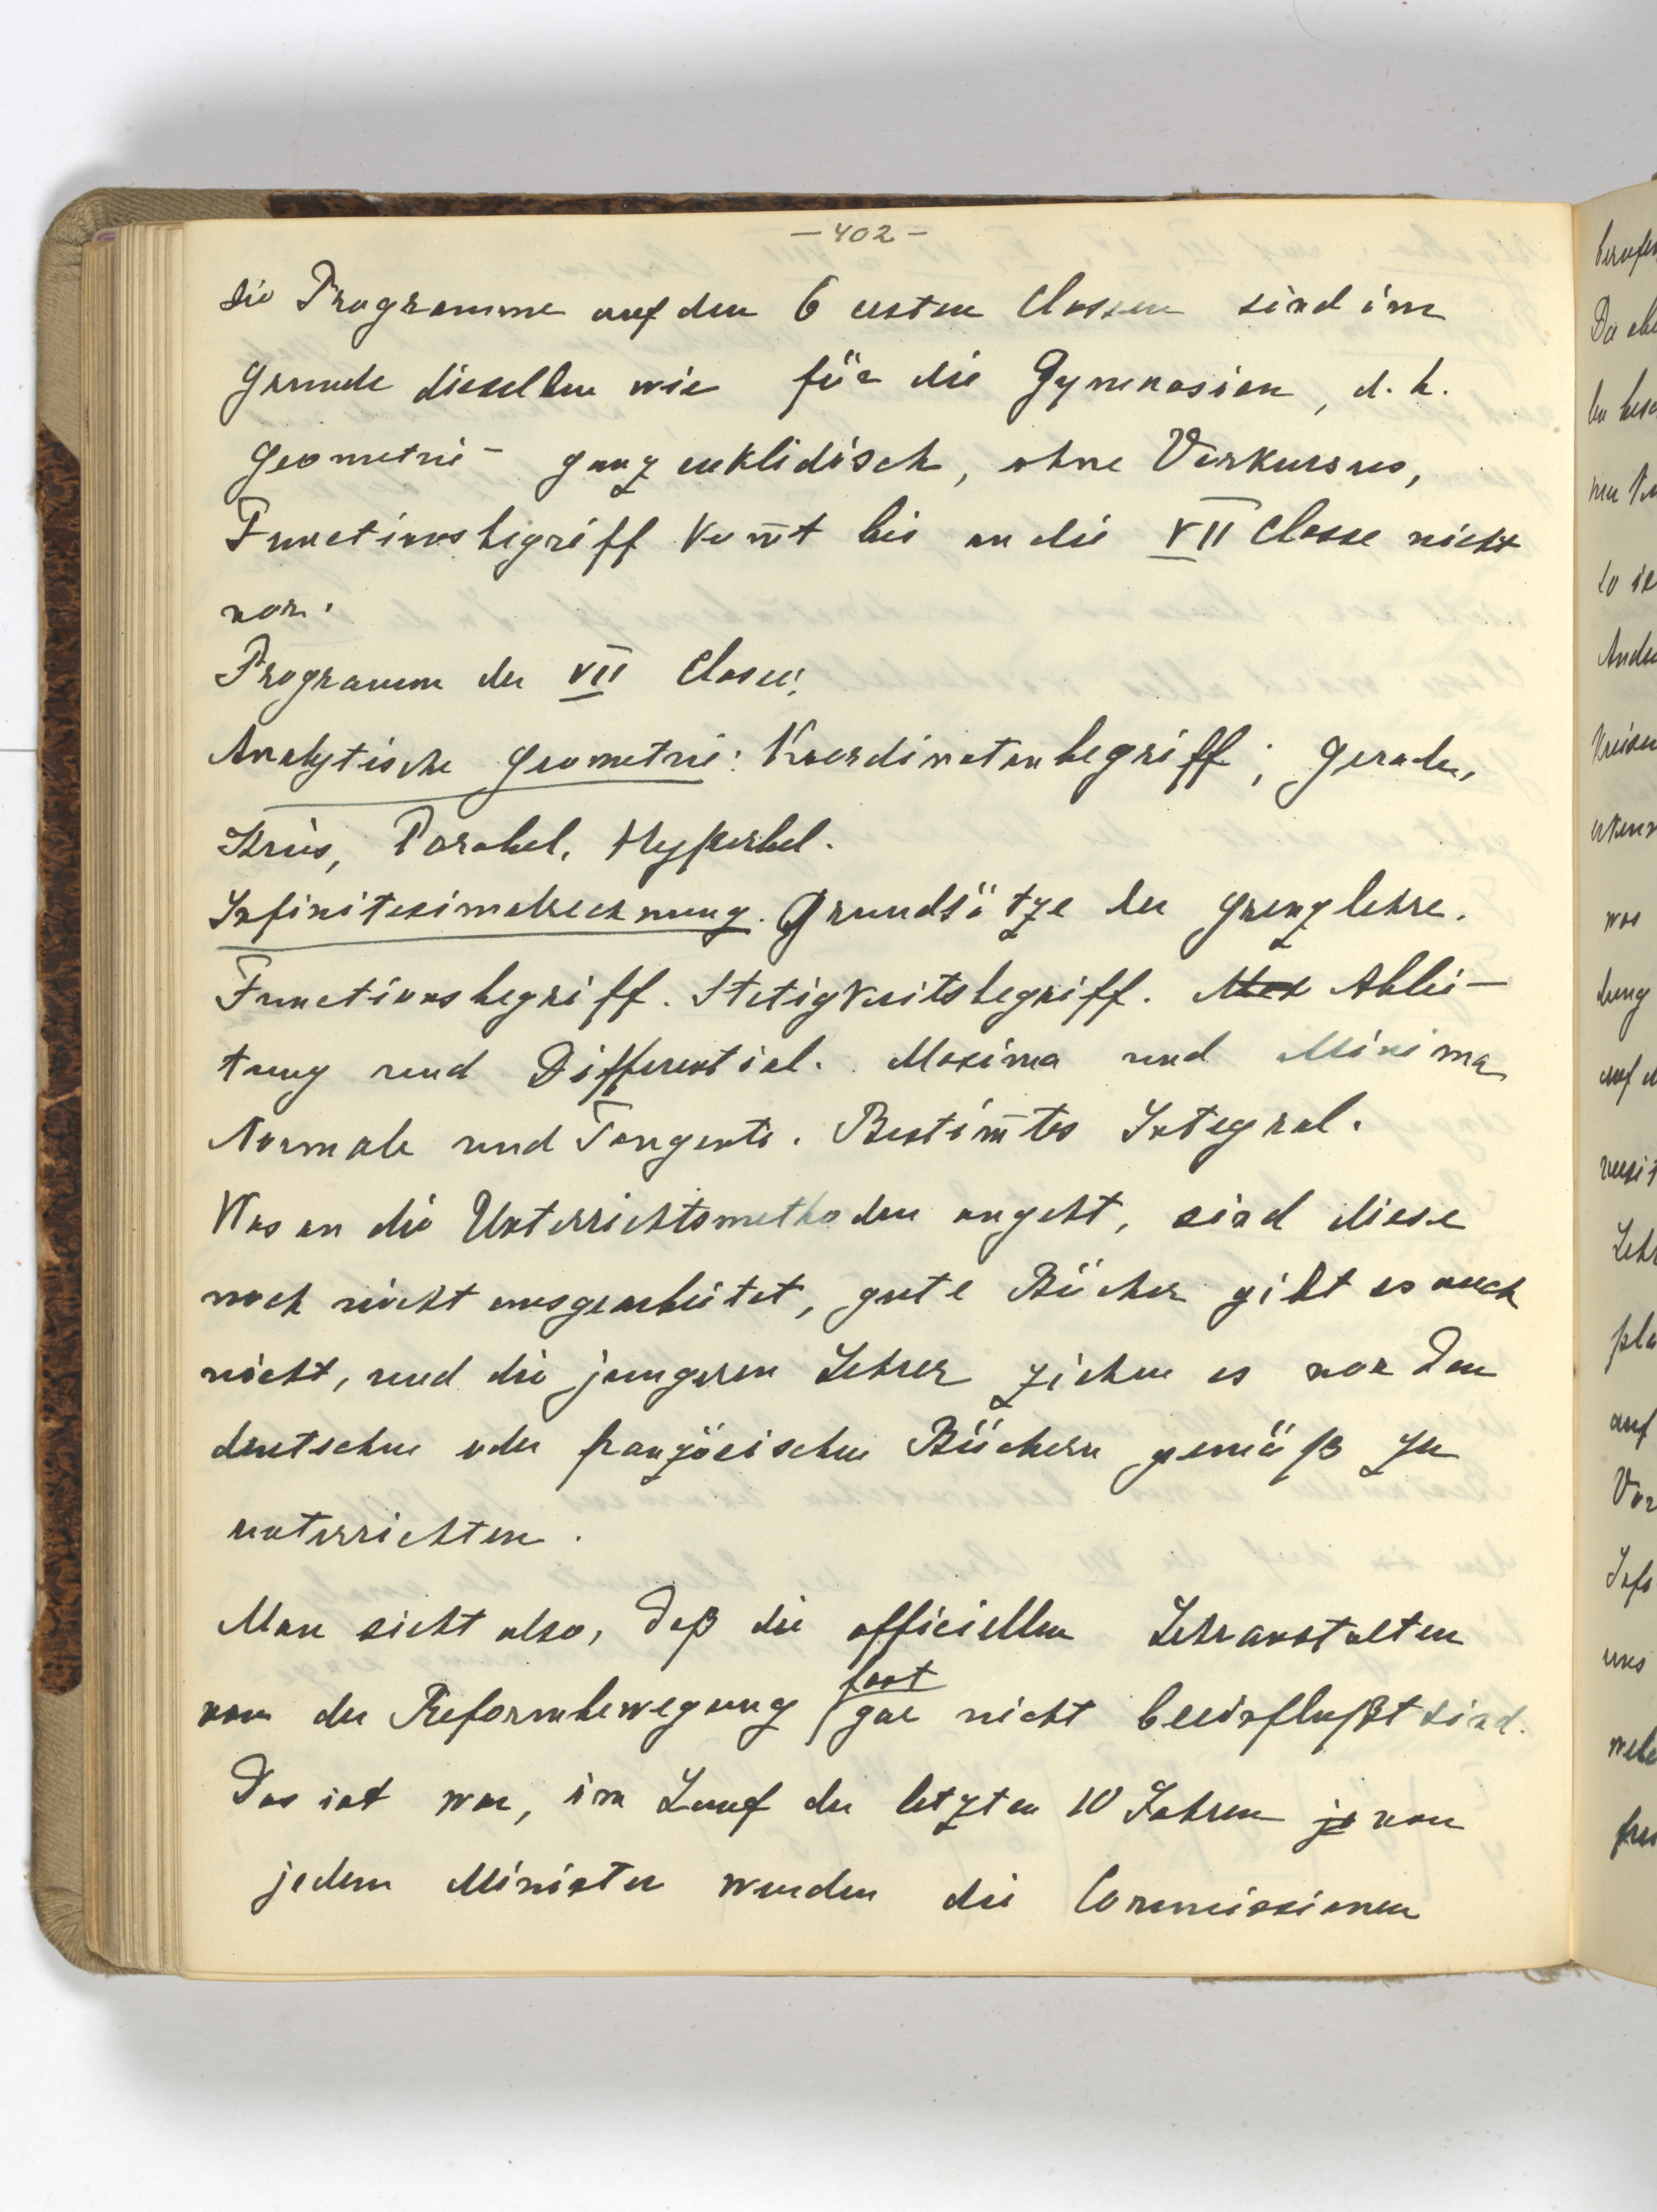 — 402 —
Die Programme auf den 6 ersten Classen sind im
Grunde dieselben wie für die Gymnasien, d. h.
Geometrie – ganz euklidisch, ohne Vorkursus,
Functionsbegriff kom̅t bis an die VII Classe nicht
vor.
Programm der VII Classe:
Analytische Geometrie: Koordinatenbegriff; Gerade,
Kreis, Parabel, Hyperbel.
Infinitesimalrechnung. Grundsätze der Grenzlehre.
Functionsbegriff. Stetigkeitsbegriff. Ablei-
tung und Differential. Maxima und Minima
Normale und Tangente. Bestim̅tes Integral.
Was an die Unterrichtsmethoden angeht, sind diese
noch nicht ausgearbeitet, gute Bücher gibt es auch
nicht, und die jungeren Lehrer ziehen es vor den
deutschen oder französischen Büchern gemäß zu
unterrichten.
Man sieht also, daß die officiellen Lehranstalten
von der Reformbewegung fast gar nicht beeinflußt sind.
Das ist war, im Lauf der letzten 10 Jahren je von
jedem Minister wurden die Commissionen